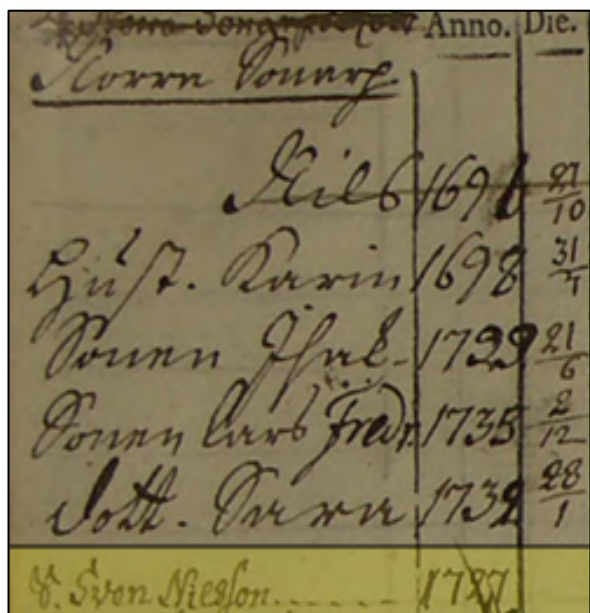 Anno. Die.
Norra Sonarp.
Nils 1696 27/10
Hust. Karin 1698 31/7
Sonen Isak- 1729 21/6
Sonen Lars Fredr. 1735 2/12
dott. Sara 1732 28/1
S. Sven Nilsson...... 1727